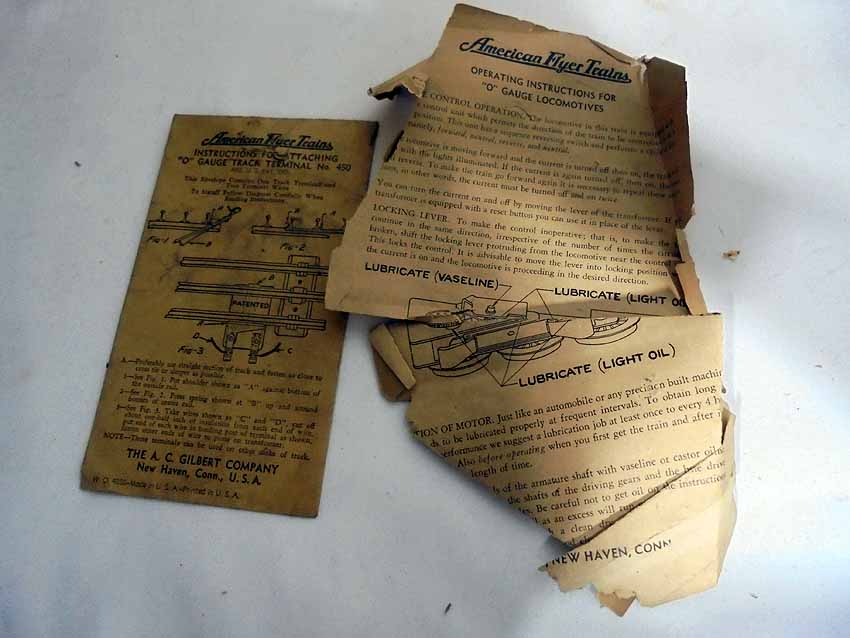 American Flyer Trains
INSTRUCTIONS FOR ATTACHING
"O" GAUGE TRACK TERMINAL No. 450
This Envelope Contains One Track Terminal and
Two Terminal Wires
To Install Follow Diagram Carefully When
Reading Instructions
Fig-1
Fig-2
B
PATENTED
A
D
C
Fig-3
A.—Preferably use straight section of track and fasten as close to
cross tie or sleeper as possible.
1—See Fig. 1. Put shoulder shown as "A" against bottom of
the outside rail.
2—See Fig. 2. Press spring shown at "B" up and around
bottom of center rail.
3—See Fig. 3. Take wires shown as "C" and "D", cut off
about one-half inch of insulation from each end of wire,
put end of each wire in binding post of terminal as shown,
fasten other ends of wire to posts on transformer.
NOTE—These terminals can be used on other makes of track.
THE A. C. GILBERT COMPANY
New Haven, Conn., U. S. A.
Made in U. S. A.—Printed in U. S. A.
American Flyer Trains
OPERATING INSTRUCTIONS FOR
"O" GAUGE LOCOMOTIVES
CONTROL OPERATION. The locomotive in this train is equipped
a control unit which permits the direction of the train to be controlled
position. This unit has a sequence reversing switch and performs
namely, forward, neutral, reverse, and neutral.
locomotive is moving forward and the current is turned off then on, the
with the lights illuminated. If the current is again turned off, then on, the
reverse. To make the train go forward again it is necessary to repeat these
in other words, the current must be turned off and on twice.
You can turn the current on and off by moving the lever of the transformer. If
transformer is equipped with a reset button you can use it in place of the lever.
LOCKING LEVER. To make the control inoperative; that is, to make the
continue in the same direction, irrespective of the number of times the current
broken, shift the locking lever protruding from the locomotive near the control
This locks the control. It is advisable to move the lever into locking position
the current is on and the locomotive is proceeding in the desired direction.
LUBRICATE (VASELINE)
LUBRICATE (LIGHT OIL
LUBRICATE (LIGHT OIL)
TION OF MOTOR. Just like an automobile or any precision built machin
ds to be lubricated properly at frequent intervals. To obtain long
erformance we suggest a lubrication job at least once to every 4 h
Also before operating when you first get the train and after
length of time.
of the armature shaft with vaseline or castor oil
the shafts of the driving gears and the drive
Be careful not to get oil on the
as an excess will
a clean
NEW HAVEN, CONN
instruction